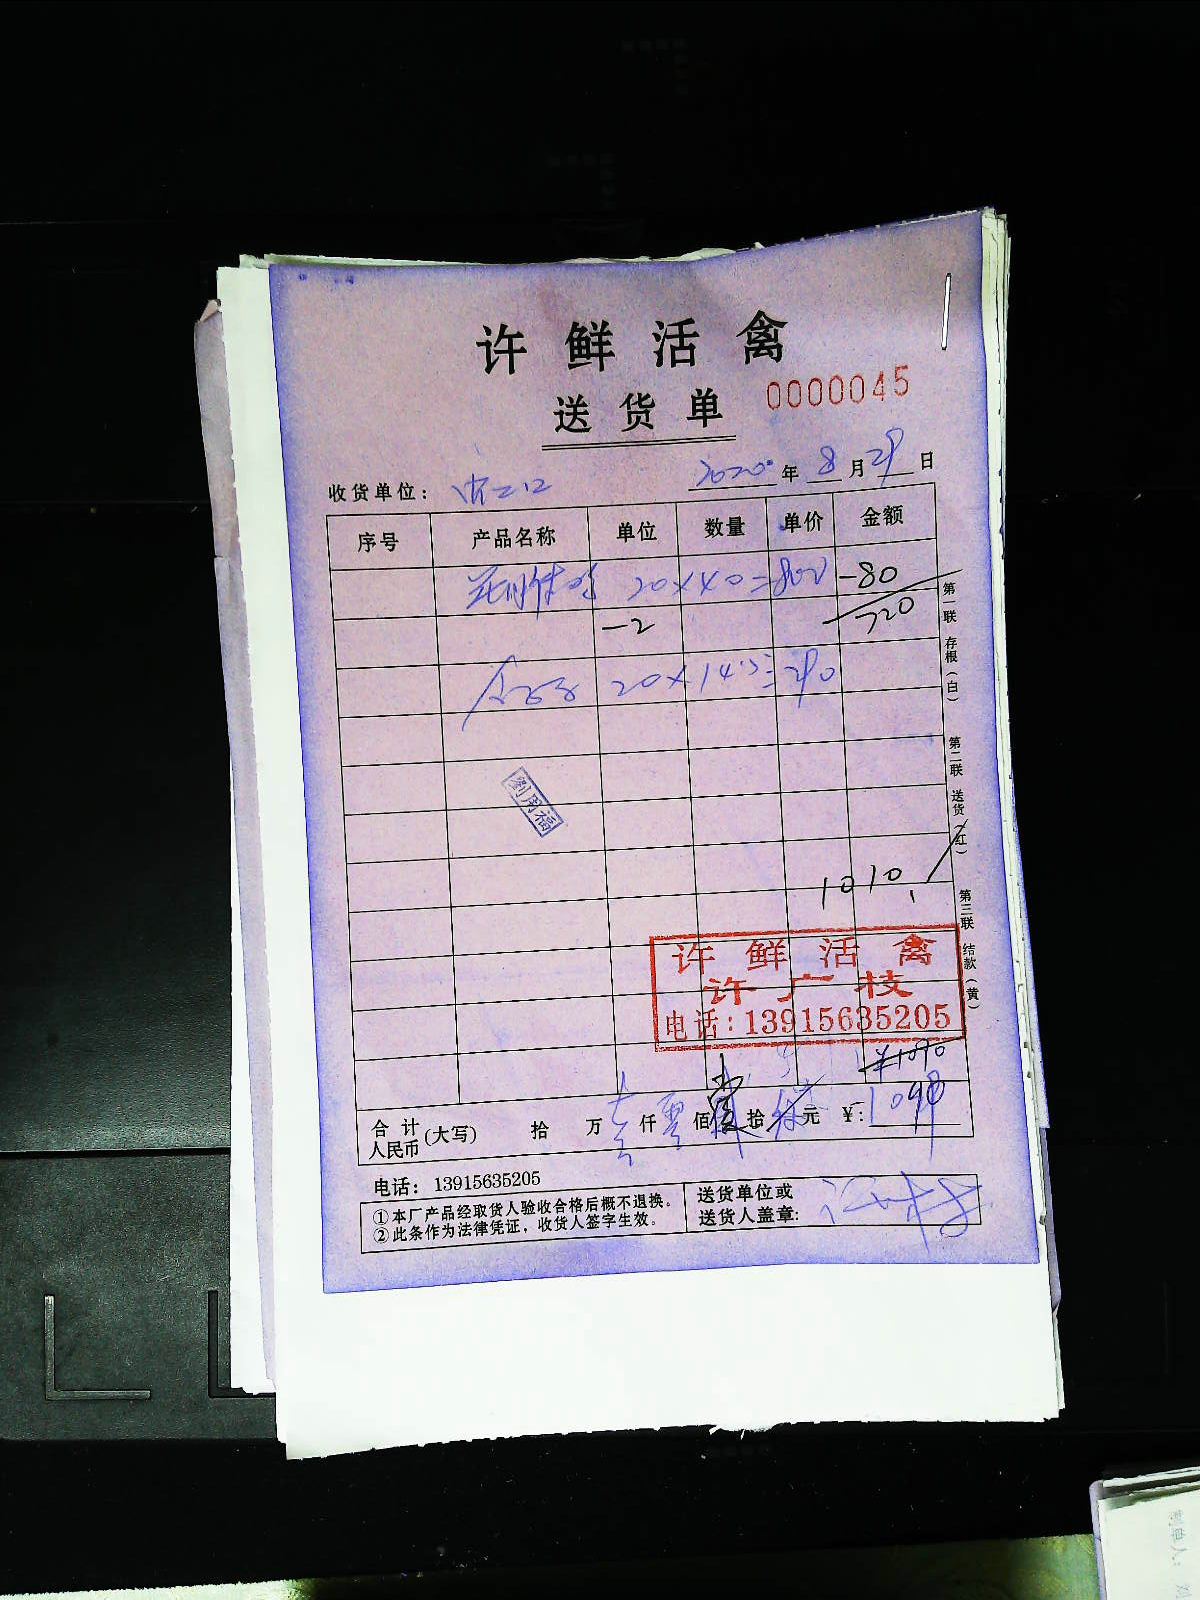 许鲜活禽
送货单
0000045
收货单位： 2020 年 8 月 29 日
序号 产品名称 单位 数量 单价 金额
20×40=800 -80
-2 720
20×14.5=290
劉用福
1010
许鲜活禽
许广枝
电话：13915635205
¥1090
合计人民币(大写) 拾 万 仟 佰 拾 元 ¥: 1090
电话：13915635205
①本厂产品经取货人验收合格后概不退换。
②此条作为法律凭证，收货人签字生效。
送货单位或
送货人盖章:
第一联 存根（白）
第二联 送货（红）
第三联 结款（黄）